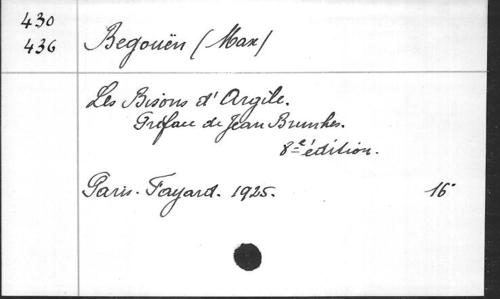 430
436
Begouën (Max)
Les Bisons d'Argile.
Préface de Jean Brunhes.
8-e édition.
Paris. Fayard. 1925. 16°